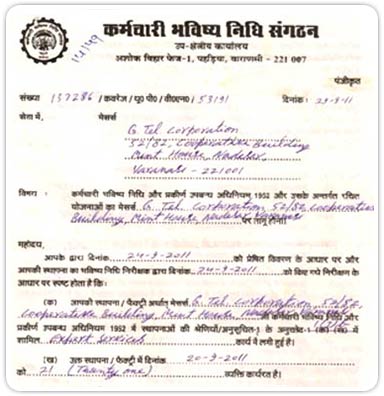 कर्मचारी भविष्य निधि संगठन
उप-क्षेत्रीय कार्यालय
अशोक बिहार फेज-1, पहड़िया, वाराणसी - 221 007
पंजीकृत
संख्या 137286 / कवरेज / यू0 पी0 / वी0एन0 / 53191 दिनांक: 29-9-11
सेवा में, मेसर्स
G. Tel Corporation
52/82, Cooperative Building
Mint House, Nadesar
Varanasi - 221001
विषय : कर्मचारी भविष्य निधि और प्रकीर्ण उपबन्ध अधिनियम 1952 और उसके अन्तर्गत रचित
योजनाओं का मेसर्स G. Tel Corporation 52/82 Cooperative
Building, Mint House Nadesar Varanasi पर लागू होना।
महोदय,
आपके द्वारा दिनांक 24-9-2011 को प्रेषित विवरण के आधार पर और
आपकी स्थापना का भविष्य निधि निरीक्षक द्वारा दिनांक 24-9-2011 को दिए गये निरीक्षण के
आधार पर स्पष्ट होता है कि।
(क) आपकी स्थापना / फैक्ट्री अर्थात् मेसर्स G. Tel Corporation, 52/82,
Cooperative Building, Mint House, को कर्मचारी भविष्य निधि और
प्रकीर्ण उपबन्ध अधिनियम 1952 में स्थापनाओं की श्रेणियों/अनुसूचित-1 के अनुच्छेद-1 में
शामिल Expert Services कार्य में लगी हुई है।
(ख) उक्त स्थापना / फैक्ट्री में दिनांक 20-9-2011
को 21 (Twenty one) व्यक्ति कार्यरत है।